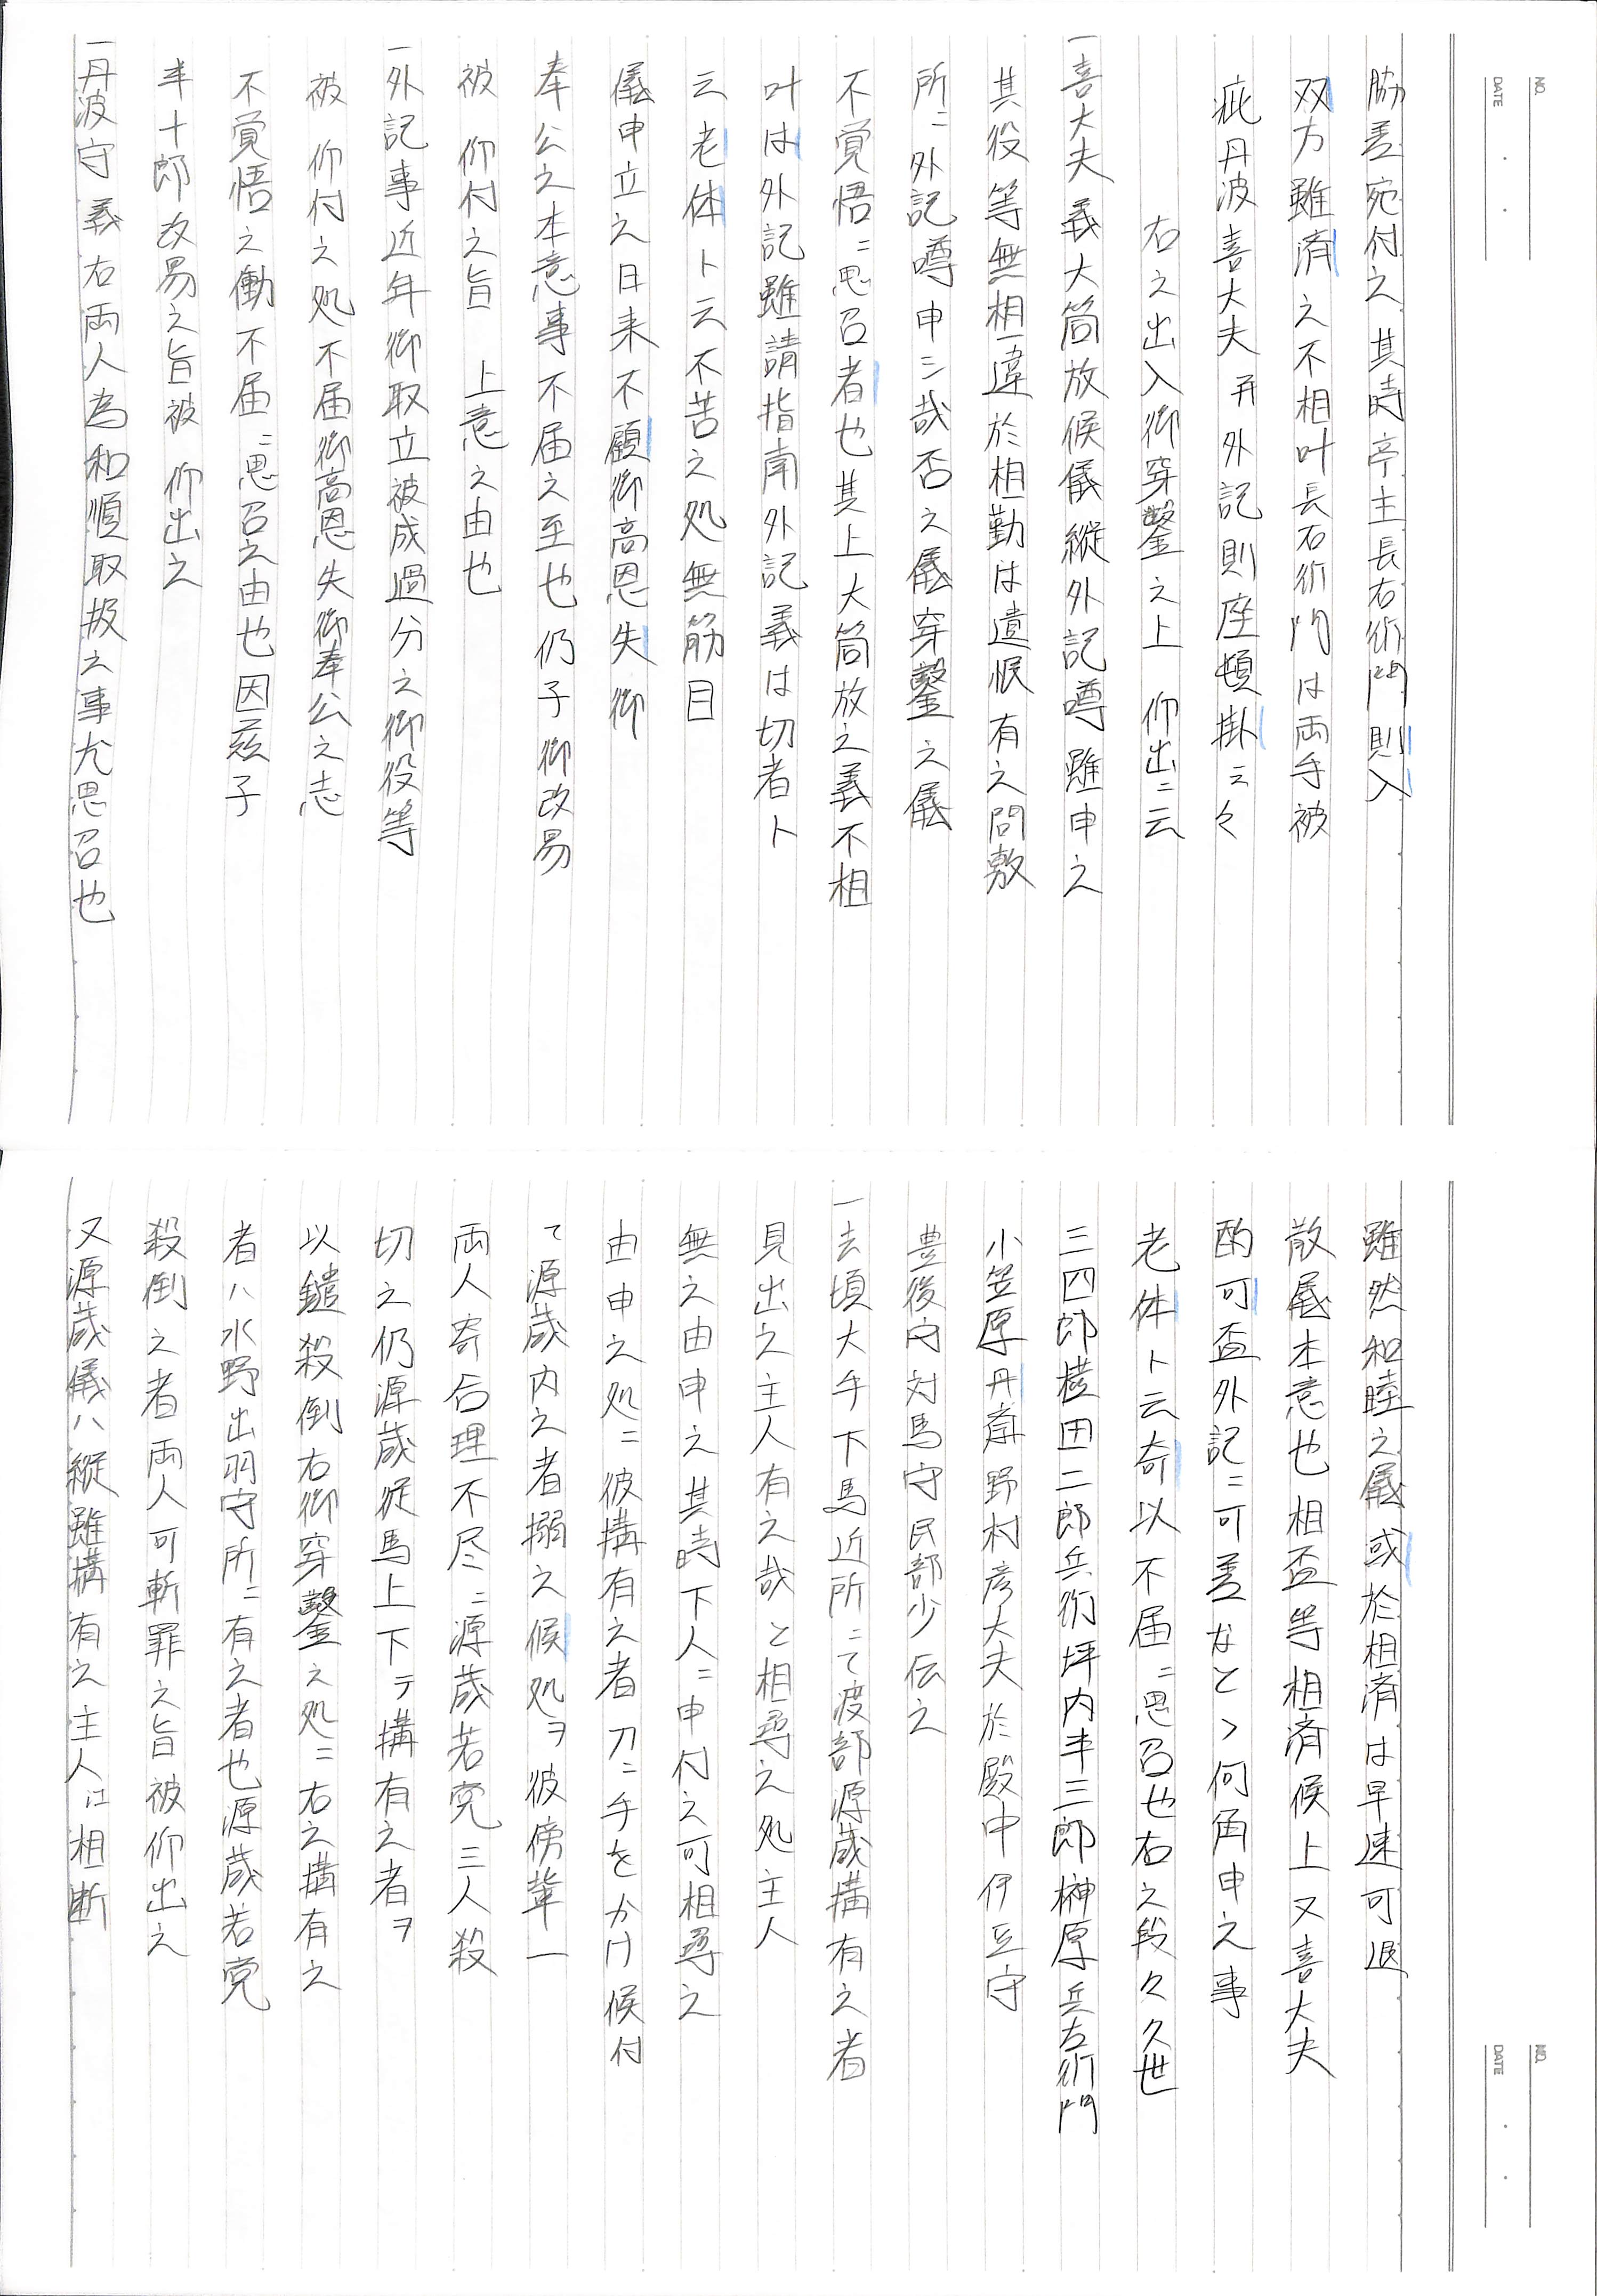 NO.
DATE
脇差宛付之其時亭主長右衛門則入
双方雖済之不相叶長右衛門は両手被
疵丹波喜大夫并外記則座頓掛云々
右之出入御穿鑿之上 仰出ニ云
一喜大夫義大筒放候儀縦外記噂雖申之
其役等無相違於相勤は遺恨有之間敷
所ニ外記噂申シ哉否之儀穿鑿之儀
不覚悟ニ思召者也其上大筒放之義不相
叶は外記雖請指南外記義は切者ト
云老体ト云不苦之処無筋目
儀申立之日来不顧御高恩失御
奉公之本意事不届之至也仍子御改易
被 仰付之旨 上意之由也
一外記事近年御取立被成過分之御役等
被 仰付之処不届御高恩失御奉公之志
不覚悟之働不届ニ思召之由也因茲子
半十郎改易之旨被 仰出之
一丹波守義右両人為和順取扱之事尤思召也
NO.
DATE
雖然和睦之儀或於相済は早速可退
散儀本意也相盃等相済候上又喜大夫
酌可盃外記ニ可差なとゝ何角申之事
老体ト云奇以不届ニ思召也右之段々久世
三四郎桜田二郎兵衛坪内半三郎榊原兵左衛門
小笠原丹斎野村彦大夫於殿中伊豆守
豊後守対馬守民部少伝之
一去頃大手下馬近所ニて渡部源蔵構有之者
見出之主人有之哉と相尋之処主人
無之由申之其時下人ニ申付之可相尋之
由申之処ニ彼構有之者刀ニ手をかけ候付
て源蔵内之者搦之候処ヲ彼傍輩一
両人寄合理不尽ニ源蔵若党三人殺
切之仍源蔵従馬上下テ構有之者ヲ
以鑓殺倒右御穿鑿之処ニ右之構有之
者ハ水野出羽守所ニ有之者也源蔵若党
殺倒之者両人可斬罪之旨被仰出之
又源蔵儀ハ縦雖構有之主人江相断